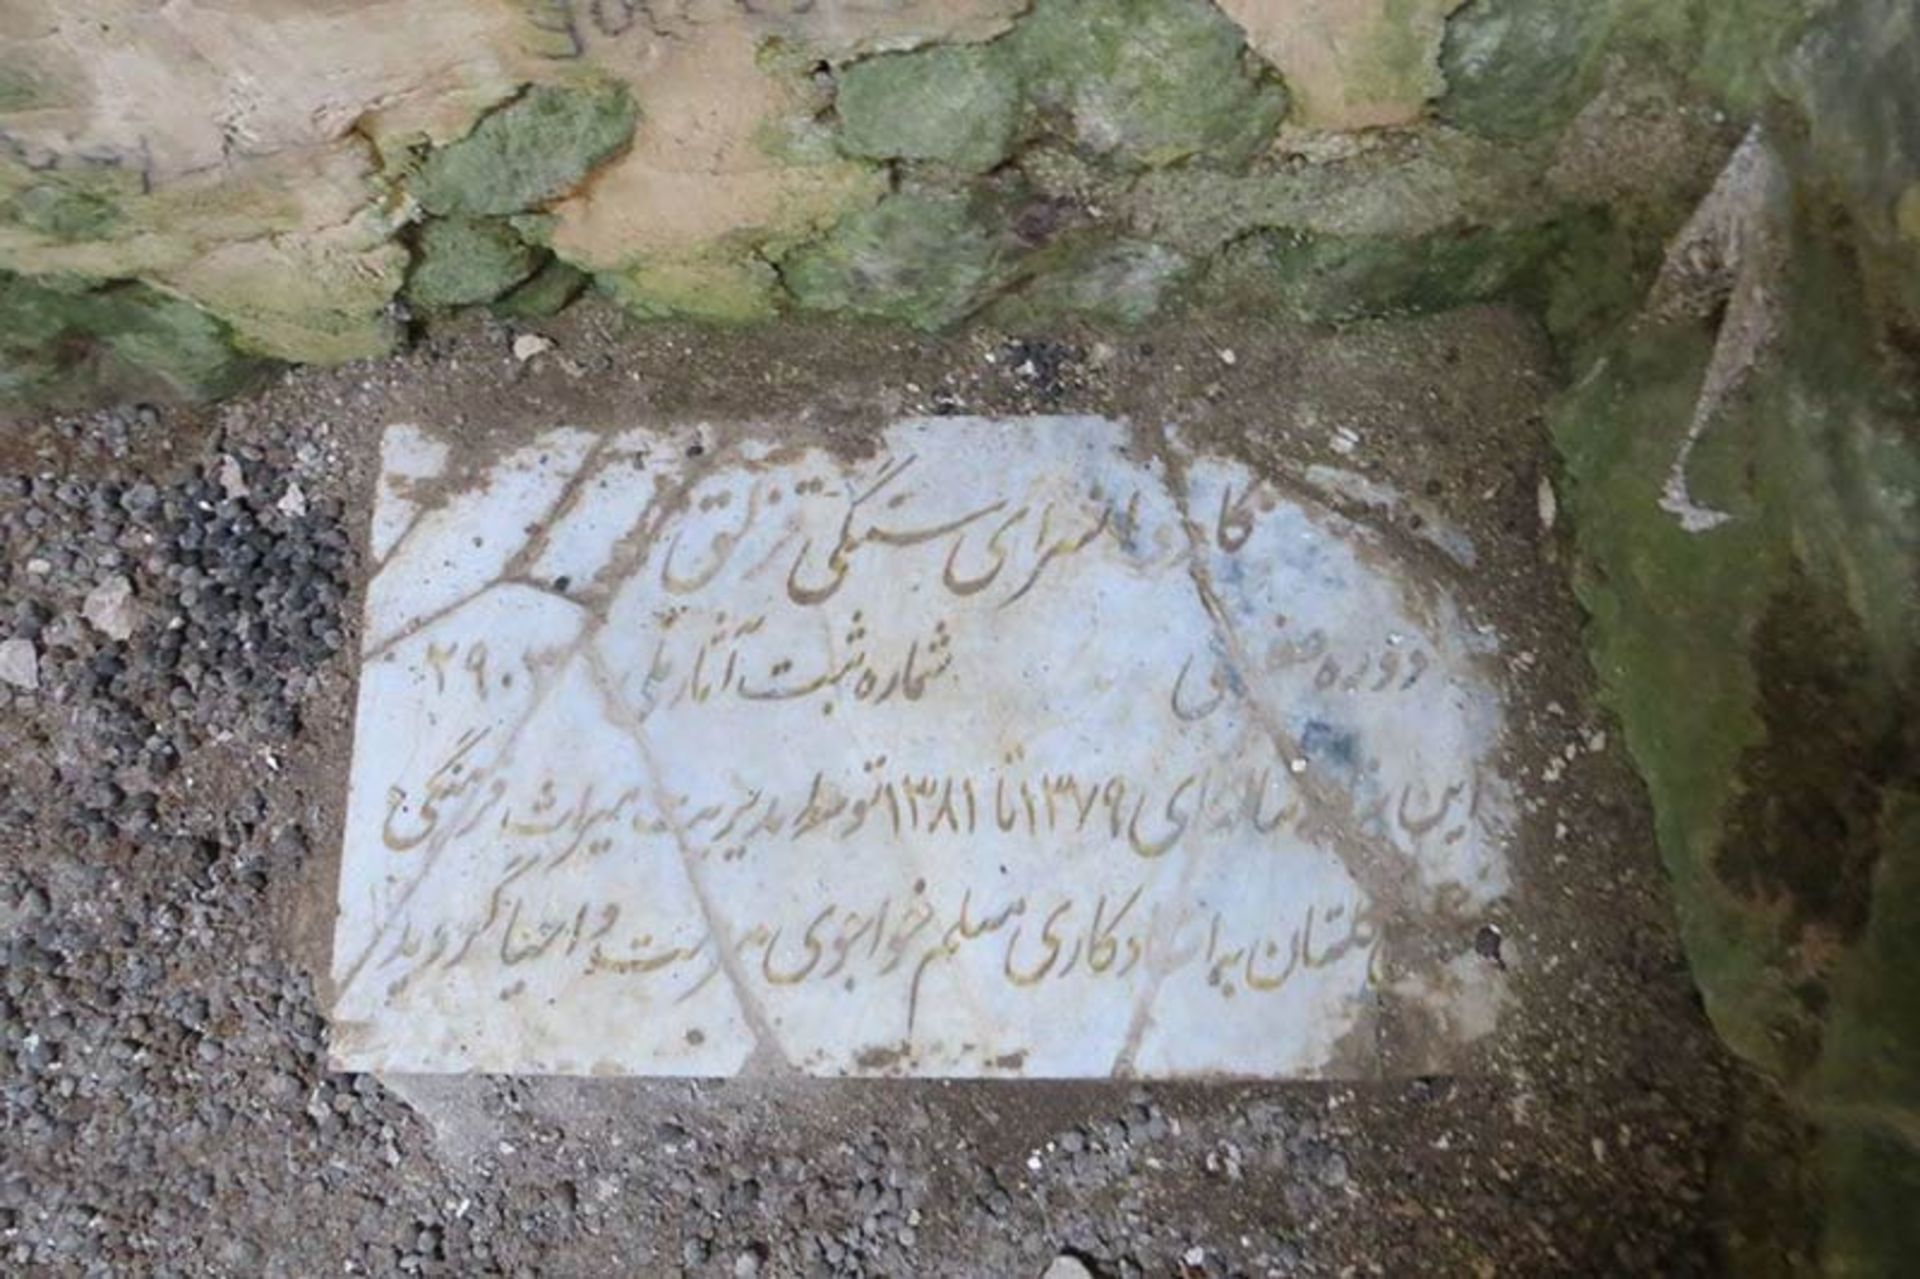 کاروانسرای سنگی قزلق
دوره صفوی شماره ثبت آثار ملی ۲۹۰۳
این بنا سالهای ۱۳۷۹ تا ۱۳۸۱ توسط مدیریت میراث فرهنگی
گلستان به استادکاری مسلم خواجوی مرمت و احیا گردید